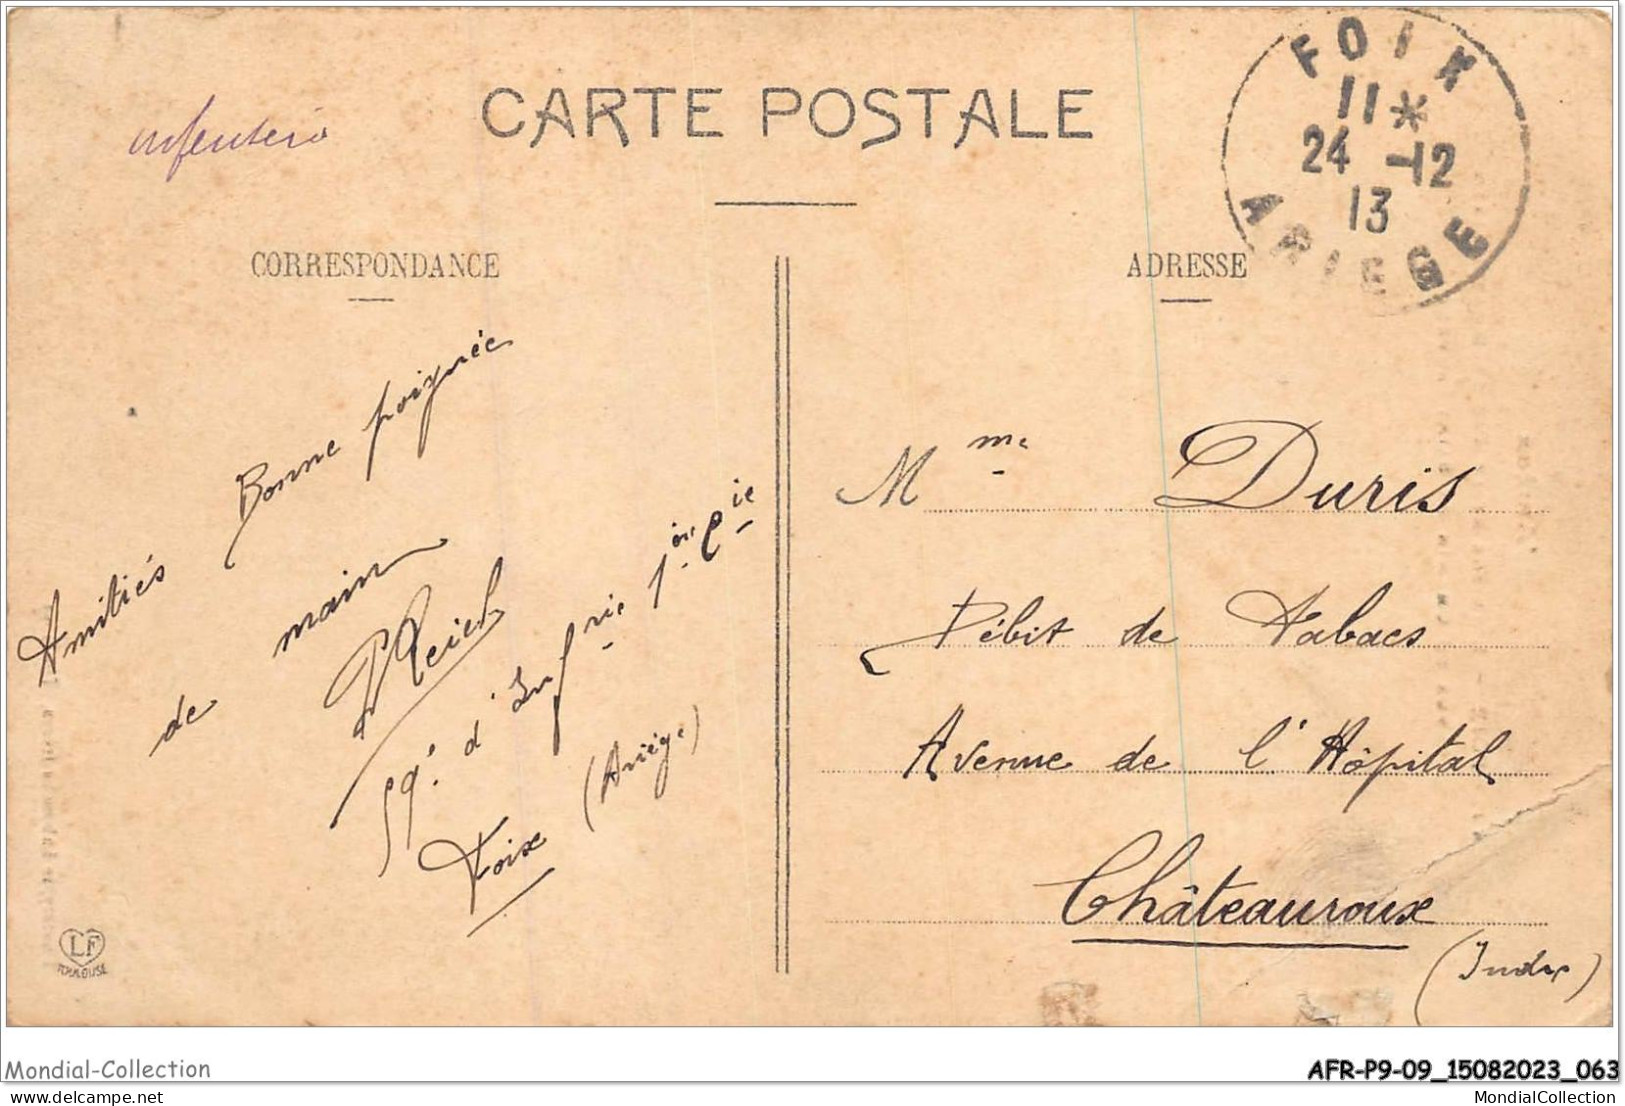 CARTE POSTALE
FOIX
11*
24 -12
13
ARIEGE
CORRESPONDANCE
ADRESSE
Amitiés Bonne poignée
de main
P Reich
59e. d'Infrie 1ère Cie
Foix (Ariège)
Mme Duris
Débit de Tabacs
Avenue de l'Hôpital
Châteauroux
(Indre)
LF
TOULOUSE
Mondial-Collection
AFR-P9-09_15082023_063
delcampe.net
MondialCollection